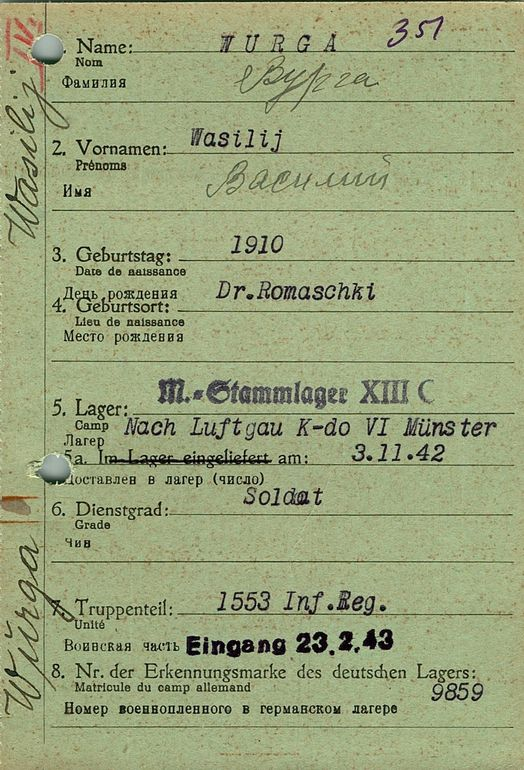 351
1. Name: WURGA
Nom
Вурга
Фамилия
2. Vornamen: Wasilij
Prénoms
Василий
Имя
3. Geburtstag: 1910
Date de naissance
День рождения
Dr.Romaschki
4. Geburtsort:
Lieu de naissance
Место рождения
M.-Stammlager XIII C
5. Lager:
Camp
Nach Luftgau K-do VI Münster
Лагер
5a. Im Lager eingeliefert am: 3.11.42
Доставлен в лагер (число)
Soldat
6. Dienstgrad:
Grade
Чин
7. Truppenteil: 1553 Inf.Reg.
Unité
Воинская часть Eingang 23.2.43
8. Nr. der Erkennungsmarke des deutschen Lagers:
Matricule du camp allemand 9859
Номер военнопленного в германском лагере
Wurga Wasilij